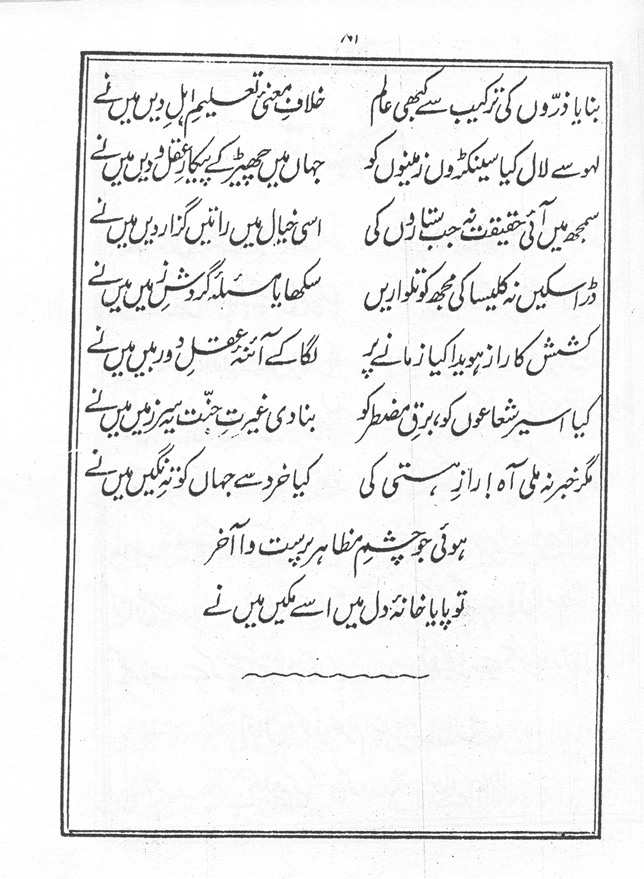 ۸۱
بنایا ذرّوں کی ترکیب سے کبھی عالم خلافِ معنیٔ تعلیمِ اہلِ دیں میں نے
لہو سے لال کیا سینکڑوں زمینوں کو جہاں میں چھیڑ کے پیکارِ عقل و دیں میں نے
سمجھ میں آئی حقیقت نہ جب ستاروں کی اسی خیال میں راتیں گزار دیں میں نے
ڈرا سکیں نہ کلیسا کی مجھ کو تلواریں سکھایا مسئلۂ گردشِ زمیں میں نے
کشش کا راز ہویدا کیا زمانے پر لگا کے آئنۂ عقلِ دوربیں میں نے
کیا اسیر شعاعوں کو، برقِ مضطر کو بنا دی غیرتِ جنّت یہ سرزمیں میں نے
مگر خبر نہ ملی آہ! رازِ ہستی کی کیا خرد سے جہاں کو تہِ نگیں میں نے
ہوئی جو چشمِ مظاہر پرست وا آخر
تو پایا خانۂ دل میں اسے مکیں میں نے